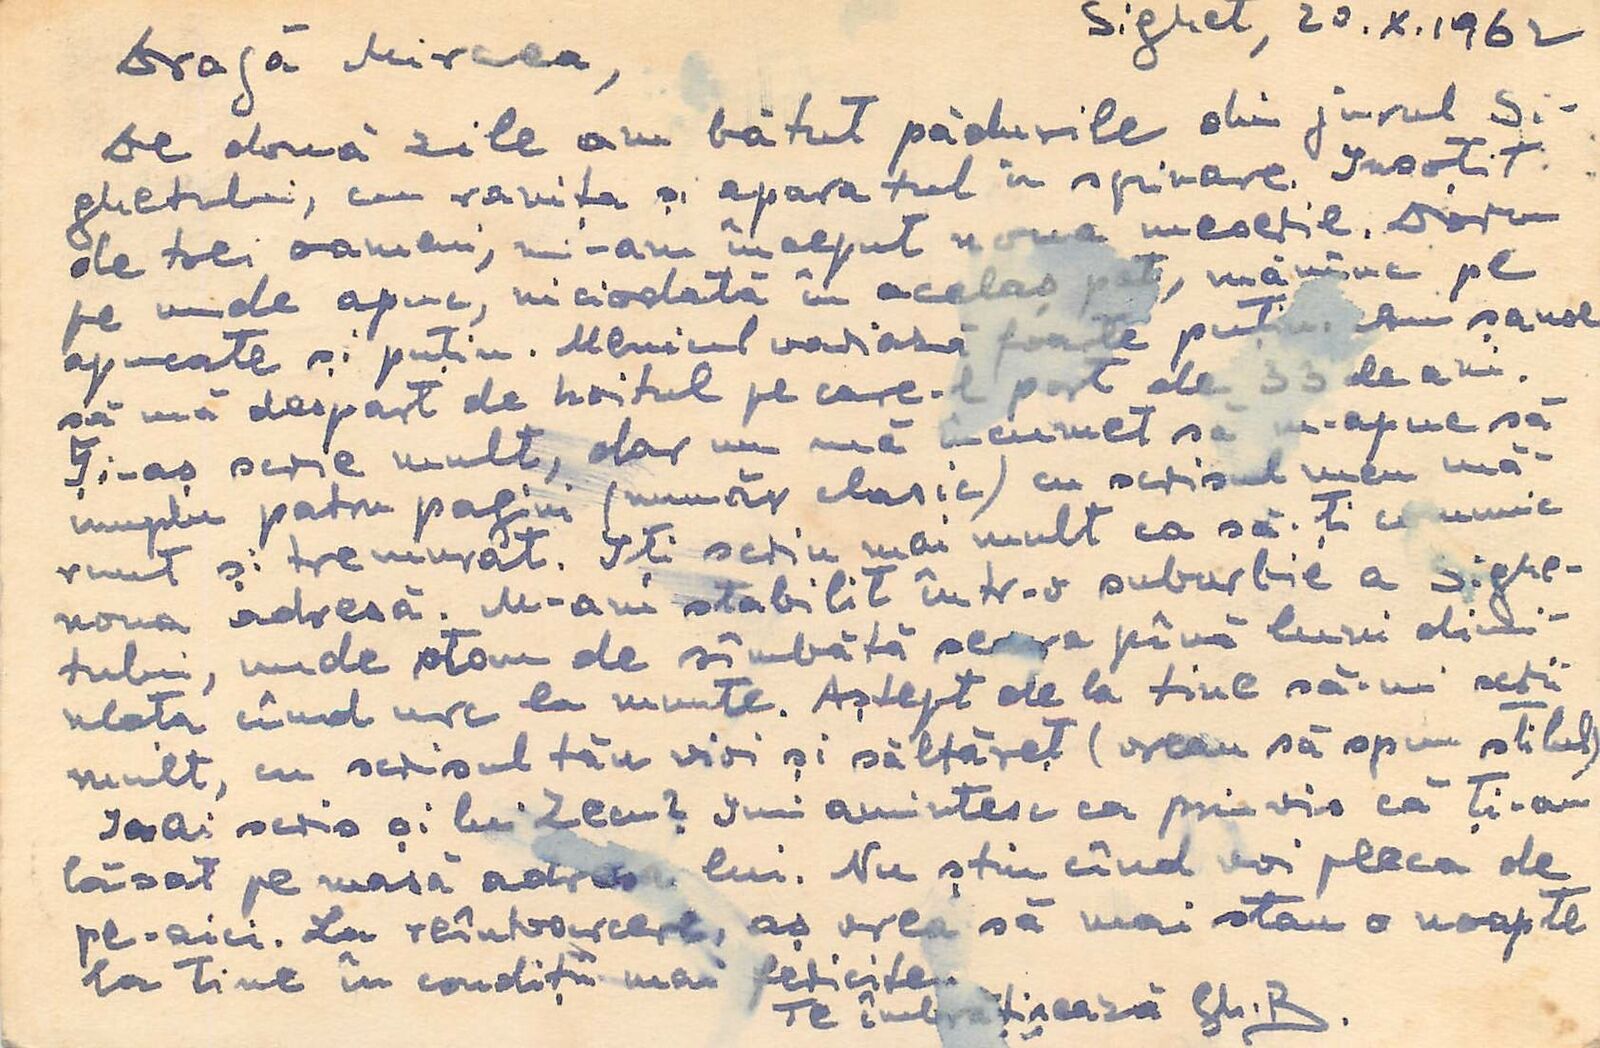 Sighet, 20.X.1962
Dragă Mircea,
De două zile am bătut pădurile din jurul Si-
ghetului, cu ranița și aparatul în spinare. Însoțit
de trei oameni, mi-am început noua meserie. Dorm
pe unde apuc, niciodată în acelaș pat, mănînc pe
apucate și puțin. Meniul variază foarte puțin. Am șanse
să mă despart de hoitul pe care-l port de 33 de ani.
Ți-aș scrie mult, dar nu mă încumet să m-apuc să
umplu patru pagini (număr clasic) cu scrisul meu mă-
runt și tremurat. Îți scriu mai mult ca să-ți comunic
noua adresă. M-am stabilit într-o suburbie a Sighe-
tului, unde stau de sîmbătă seara pînă luni dimi-
neața cînd urc la munte. Aștept de la tine să-mi scrii
mult, cu scrisul tău vioi și săltăreț (vreau să spun stilul)
I-ai scris și lui Zecu? Îmi amintesc ca prin vis că ți-am
lăsat pe masă adresa lui. Nu știu cînd voi pleca de
pe-aici. La reîntoarcere, aș vrea să mai stau o noapte
la tine în condiții mai fericite.
Te îmbrățișează Gh. B.